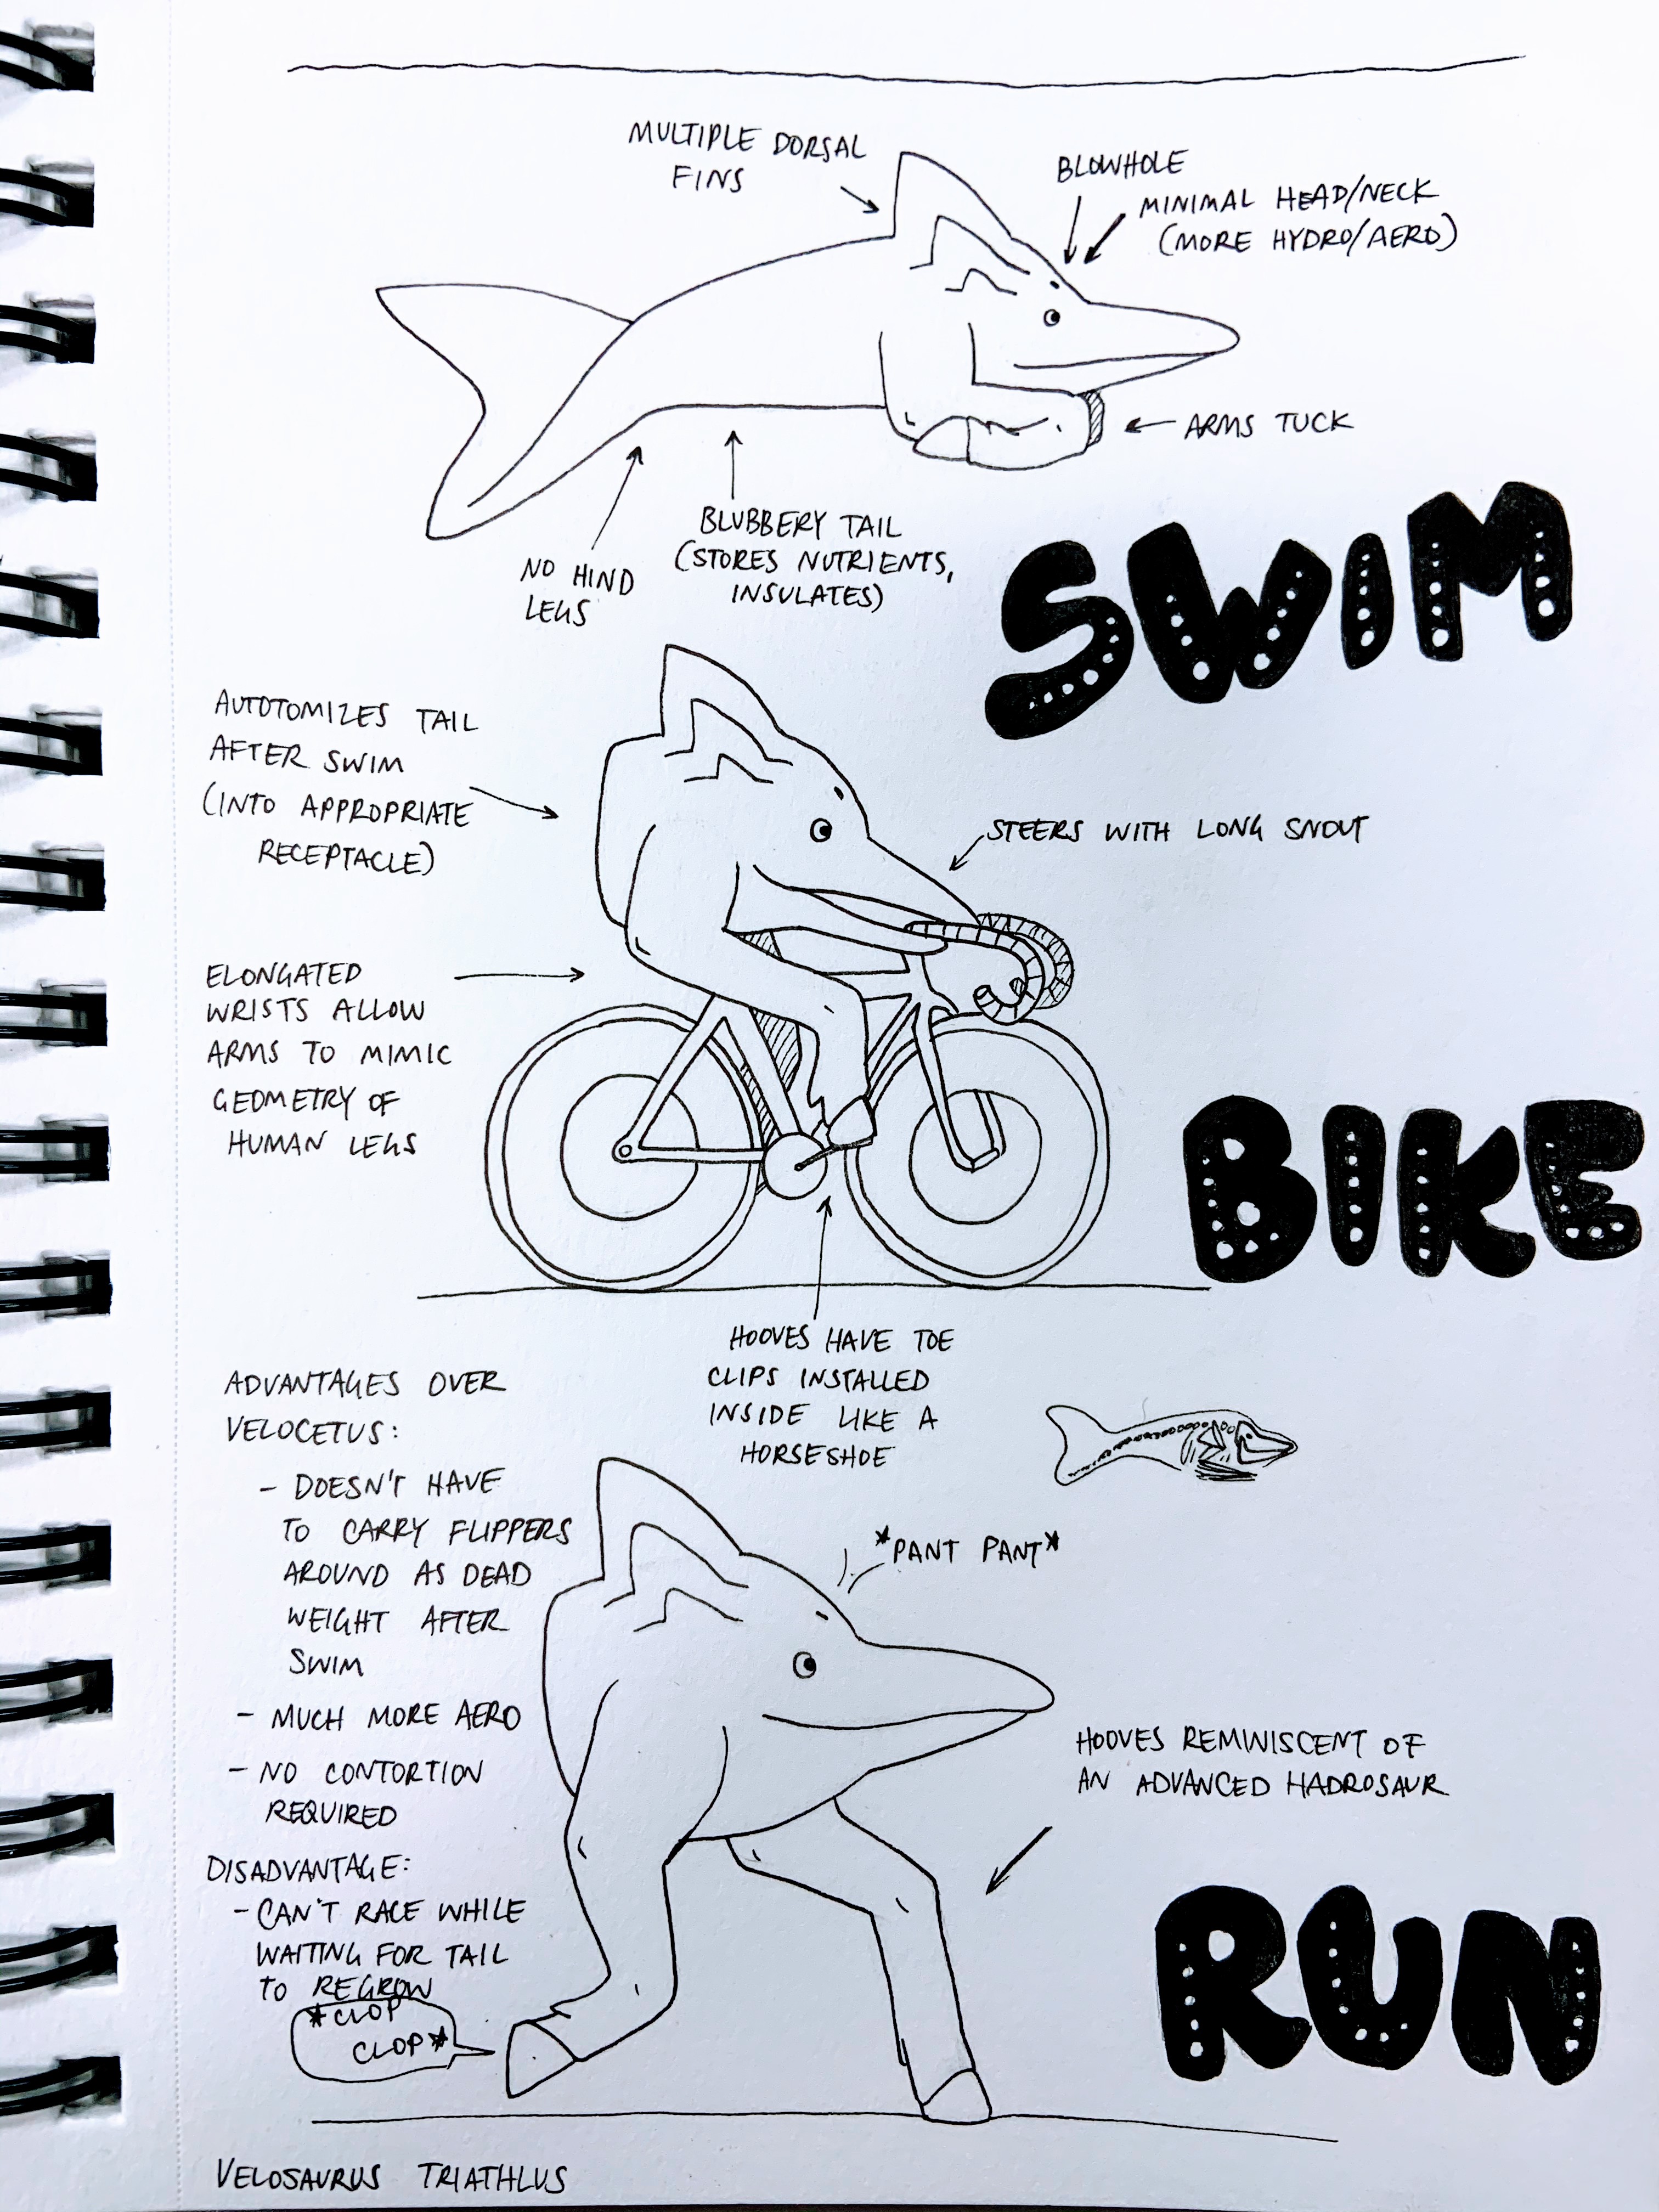 MULTIPLE DORSAL
FINS
BLOWHOLE
MINIMAL HEAD/NECK
(MORE HYDRO/AERO)
ARMS TUCK
BLUBBERY TAIL
(STORES NUTRIENTS,
INSULATES)
NO HIND
LEGS
SWIM
AUTOTOMIZES TAIL
AFTER SWIM
(INTO APPROPRIATE
RECEPTACLE)
STEERS WITH LONG SNOUT
ELONGATED
WRISTS ALLOW
ARMS TO MIMIC
GEOMETRY OF
HUMAN LEGS
BIKE
HOOVES HAVE TOE
CLIPS INSTALLED
INSIDE LIKE A
HORSESHOE
ADVANTAGES OVER
VELOCETUS:
- DOESN'T HAVE
TO CARRY FLIPPERS
AROUND AS DEAD
WEIGHT AFTER
SWIM
- MUCH MORE AERO
- NO CONTORTION
REQUIRED
DISADVANTAGE:
- CAN'T RACE WHILE
WAITING FOR TAIL
TO REGROW
*PANT PANT*
HOOVES REMINISCENT OF
AN ADVANCED HADROSAUR
*CLOP
CLOP*
RUN
VELOSAURUS TRIATHLUS